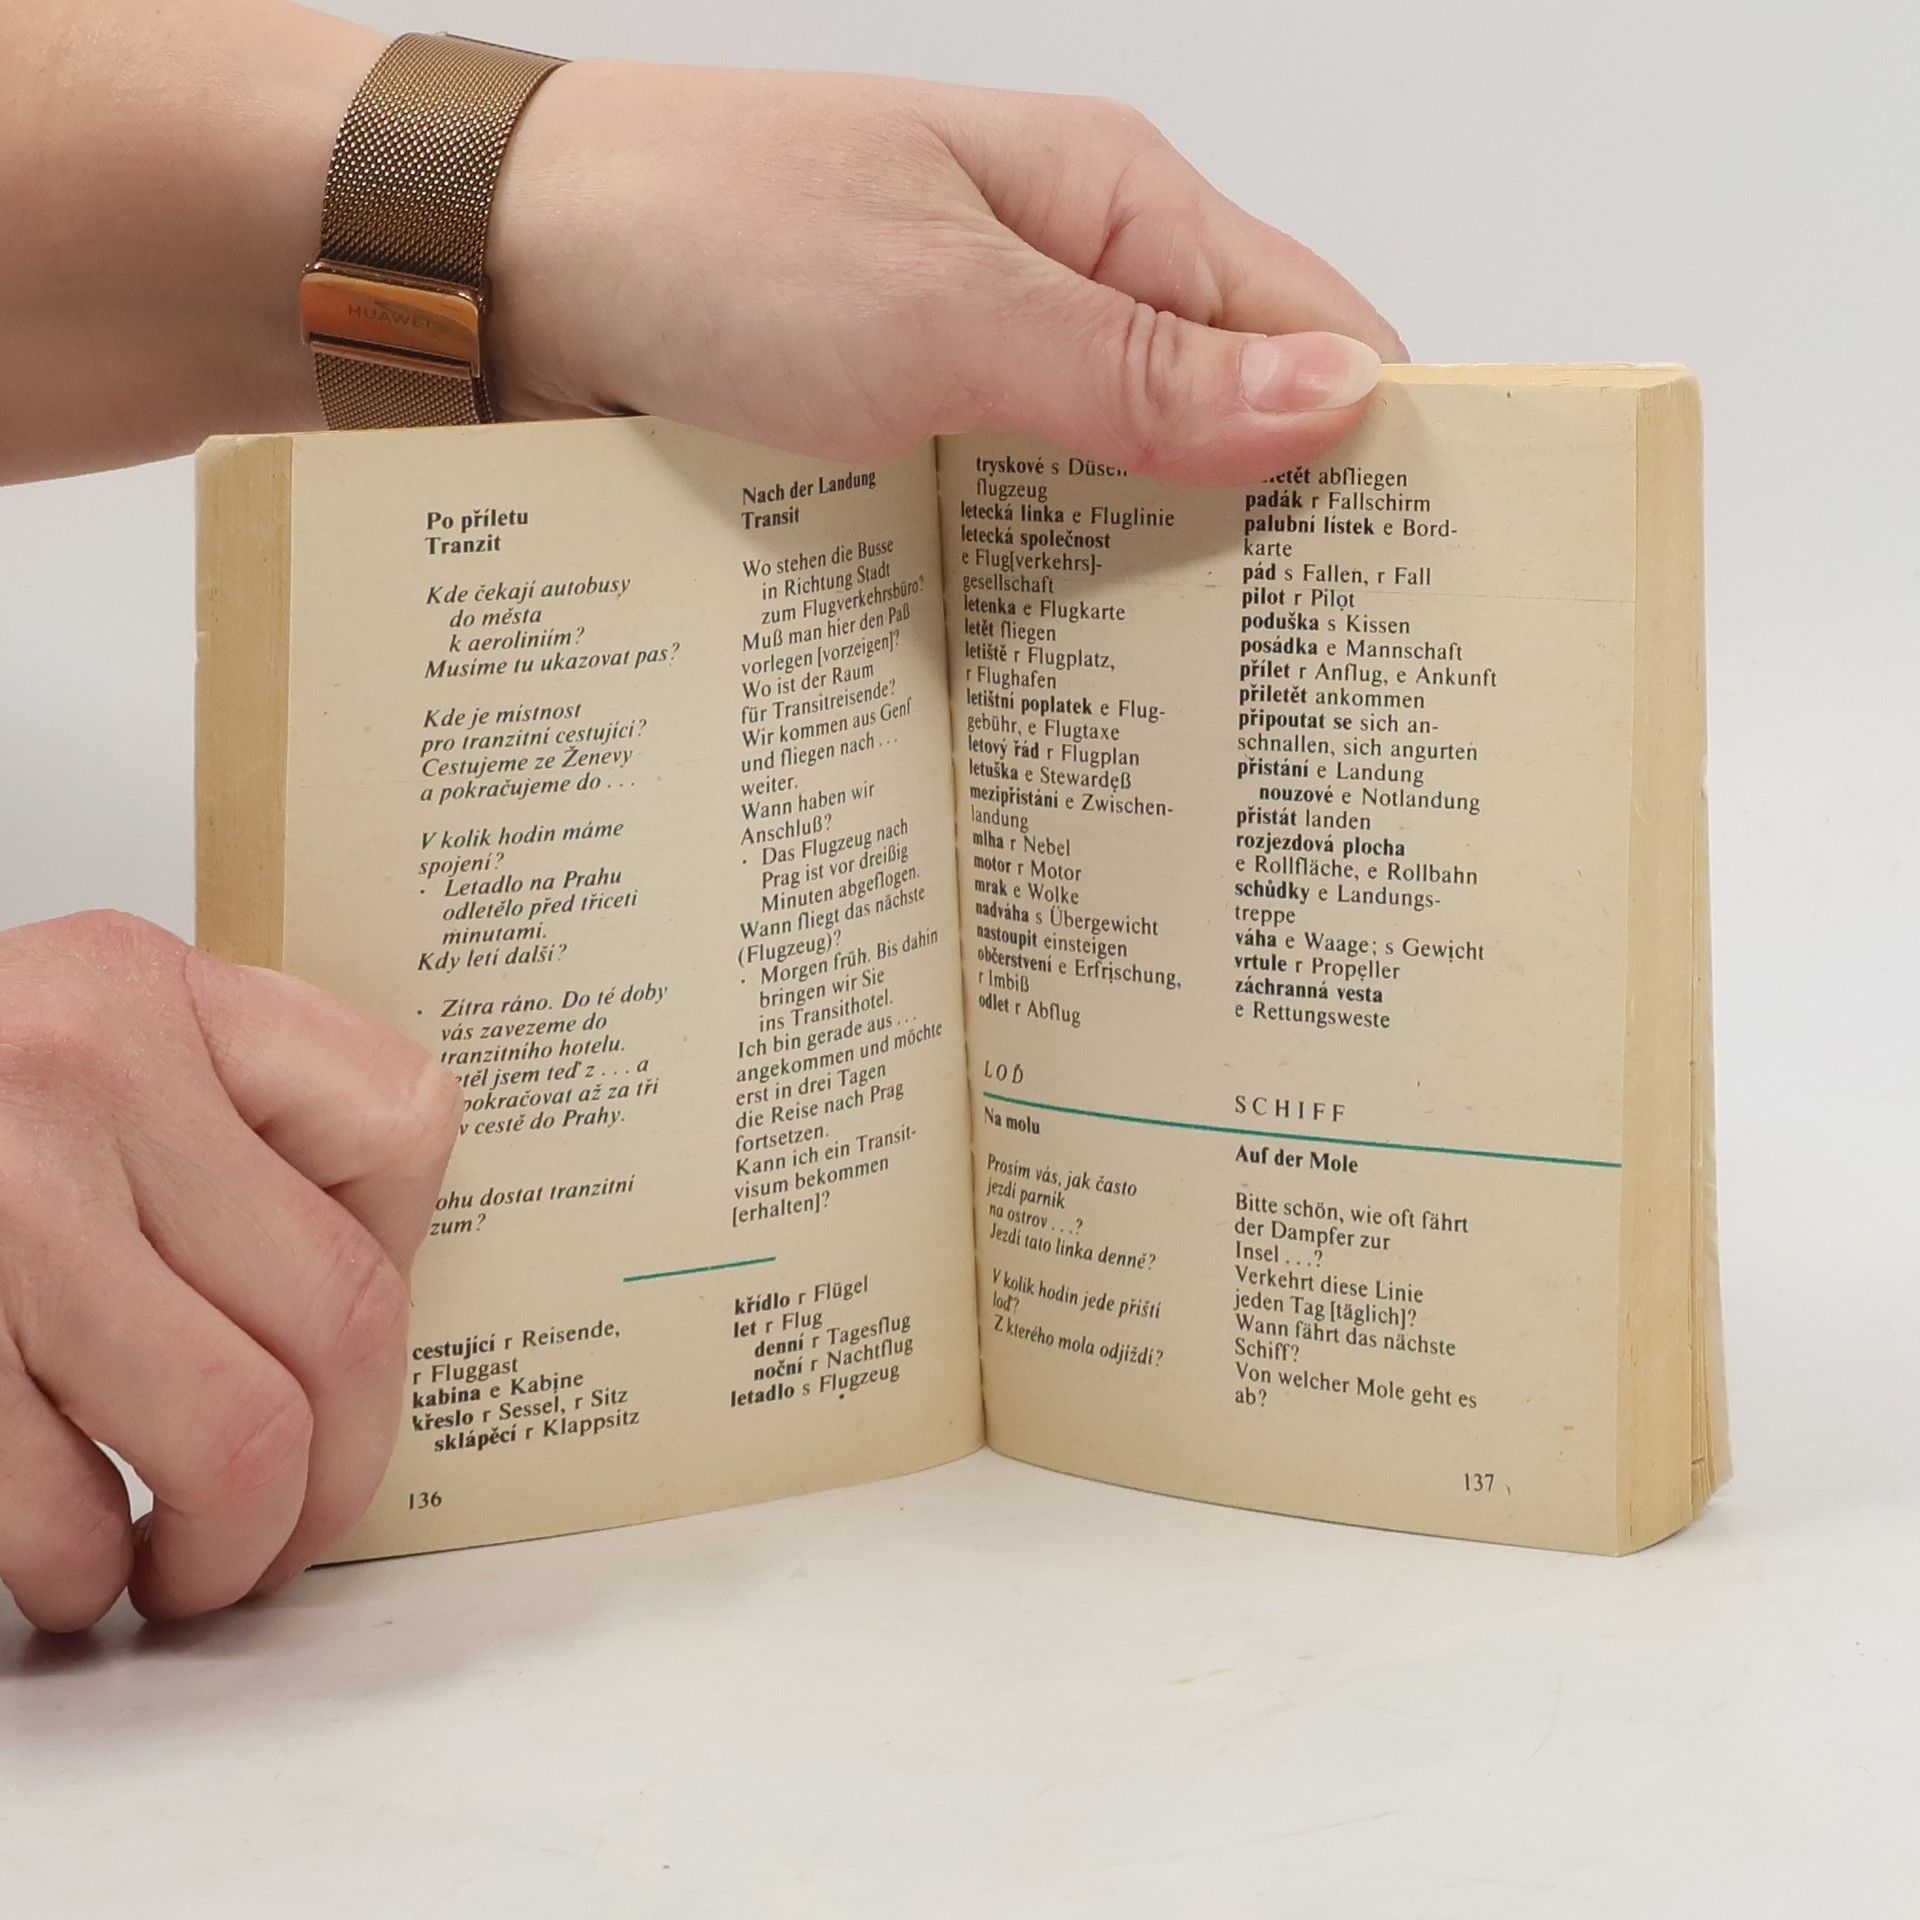 HUAWEI
Po příletu
Tranzit
Kde čekají autobusy
do města
k aeroliniím?
Musíme tu ukazovat pas?
Kde je místnost
pro tranzitní cestující?
Cestujeme ze Ženevy
a pokračujeme do . . .
V kolik hodin máme
spojení?
· Letadlo na Prahu
odletělo před třiceti
minutami.
Kdy letí další?
· Zítra ráno. Do té doby
vás zavezeme do
tranzitního hotelu.
jsem teď z . . . a
pokračovat až za tři
v cestě do Prahy.
dostat tranzitní
Nach der Landung
Transit
Wo stehen die Busse
in Richtung Stadt
zum Flugverkehrsbüro?
Muß man hier den Paß
vorlegen [vorzeigen]?
Wo ist der Raum
für Transitreisende?
Wir kommen aus Genf
und fliegen nach . . .
weiter.
Wann haben wir
Anschluß?
· Das Flugzeug nach
Prag ist vor dreißig
Minuten abgeflogen.
Wann fliegt das nächste
(Flugzeug)?
· Morgen früh. Bis dahin
bringen wir Sie
ins Transithotel.
Ich bin gerade aus . . .
angekommen und möchte
erst in drei Tagen
die Reise nach Prag
fortsetzen.
Kann ich ein Transit-
visum bekommen
[erhalten]?
cestující r Reisende,
r Fluggast
kabina e Kabine
křeslo r Sessel, r Sitz
sklápěcí r Klappsitz
křídlo r Flügel
let r Flug
denní r Tagesflug
noční r Nachtflug
letadlo s Flugzeug
136
tryskové s
flugzeug
letecká linka e Fluglinie
letecká společnost
e Flug[verkehrs]-
gesellschaft
letenka e Flugkarte
letět fliegen
letiště r Flugplatz,
r Flughafen
letištní poplatek e Flug-
gebühr, e Flugtaxe
letový řád r Flugplan
letuška e Stewardeß
mezipřistání e Zwischen-
landung
mlha r Nebel
motor r Motor
mrak e Wolke
nadváha s Übergewicht
nastoupit einsteigen
občerstvení e Erfrischung,
r Imbiß
odlet r Abflug
abfliegen
padák r Fallschirm
palubní lístek e Bord-
karte
pád s Fallen, r Fall
pilot r Pilot
poduška s Kissen
posádka e Mannschaft
přílet r Anflug, e Ankunft
přiletět ankommen
připoutat se sich an-
schnallen, sich angurten
přistání e Landung
nouzové e Notlandung
přistát landen
rozjezdová plocha
e Rollfläche, e Rollbahn
schůdky e Landungs-
treppe
váha e Waage; s Gewicht
vrtule r Propeller
záchranná vesta
e Rettungsweste
LOĎ
Na molu
Prosím vás, jak často
jezdí parník
na ostrov . . .?
Jezdí tato linka denně?
V kolik hodin jede příští
loď?
Z kterého mola odjíždí?
SCHIFF
Auf der Mole
Bitte schön, wie oft fährt
der Dampfer zur
Insel . . .?
Verkehrt diese Linie
jeden Tag [täglich]?
Wann fährt das nächste
Schiff?
Von welcher Mole geht es
ab?
137